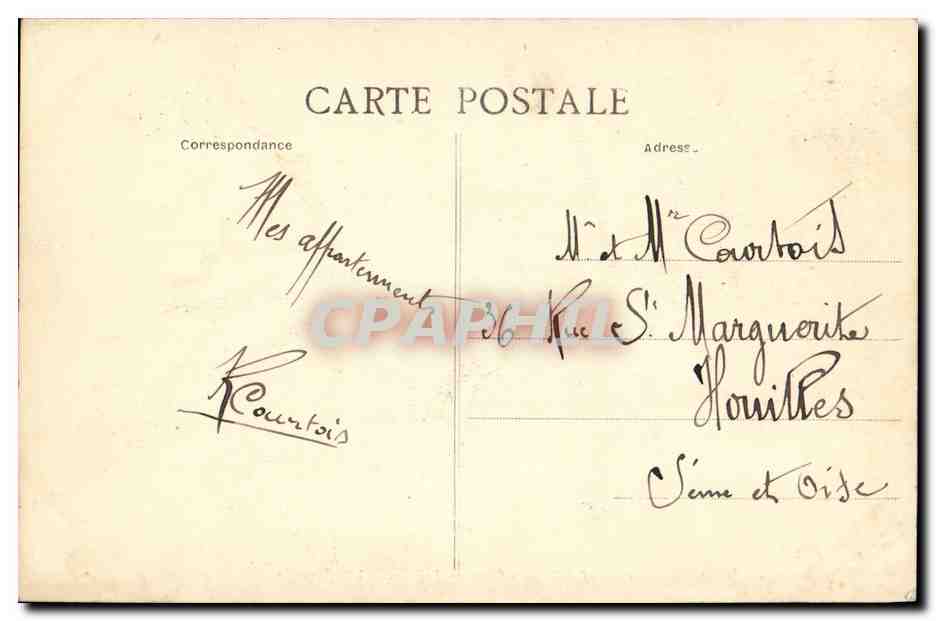 CARTE POSTALE
Correspondance
Adresse
Mes appartements
R Courtois
Mr et Mme Courtois
36 Rue Ste Marguerite
Houilles
Seine et Oise
CPAPHIL